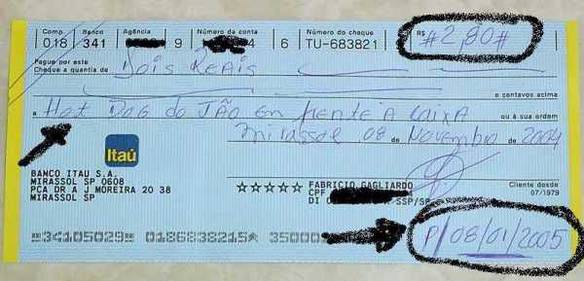 Comp Banco Agência Número da conta Número do cheque R$
018 341 9 4 6 TU-683821 #2,80#
Pague por este
Cheque a quantia de Dois Reais
e centavos acima
a Hot Dog do JÃO em frente A caixa ou à sua ordem
Mirassol 08 de Novembro de 2004
Itaú
BANCO ITAU S.A.
MIRASSOL SP 0608
PCA DR A J MOREIRA 20 38
MIRASSOL SP
☆☆☆☆☆ FABRICIO GAGLIARDO
CPF
DI SSP/SP
Cliente desde
07/1979
34105029 0186838215 35000
P/08/01/2005